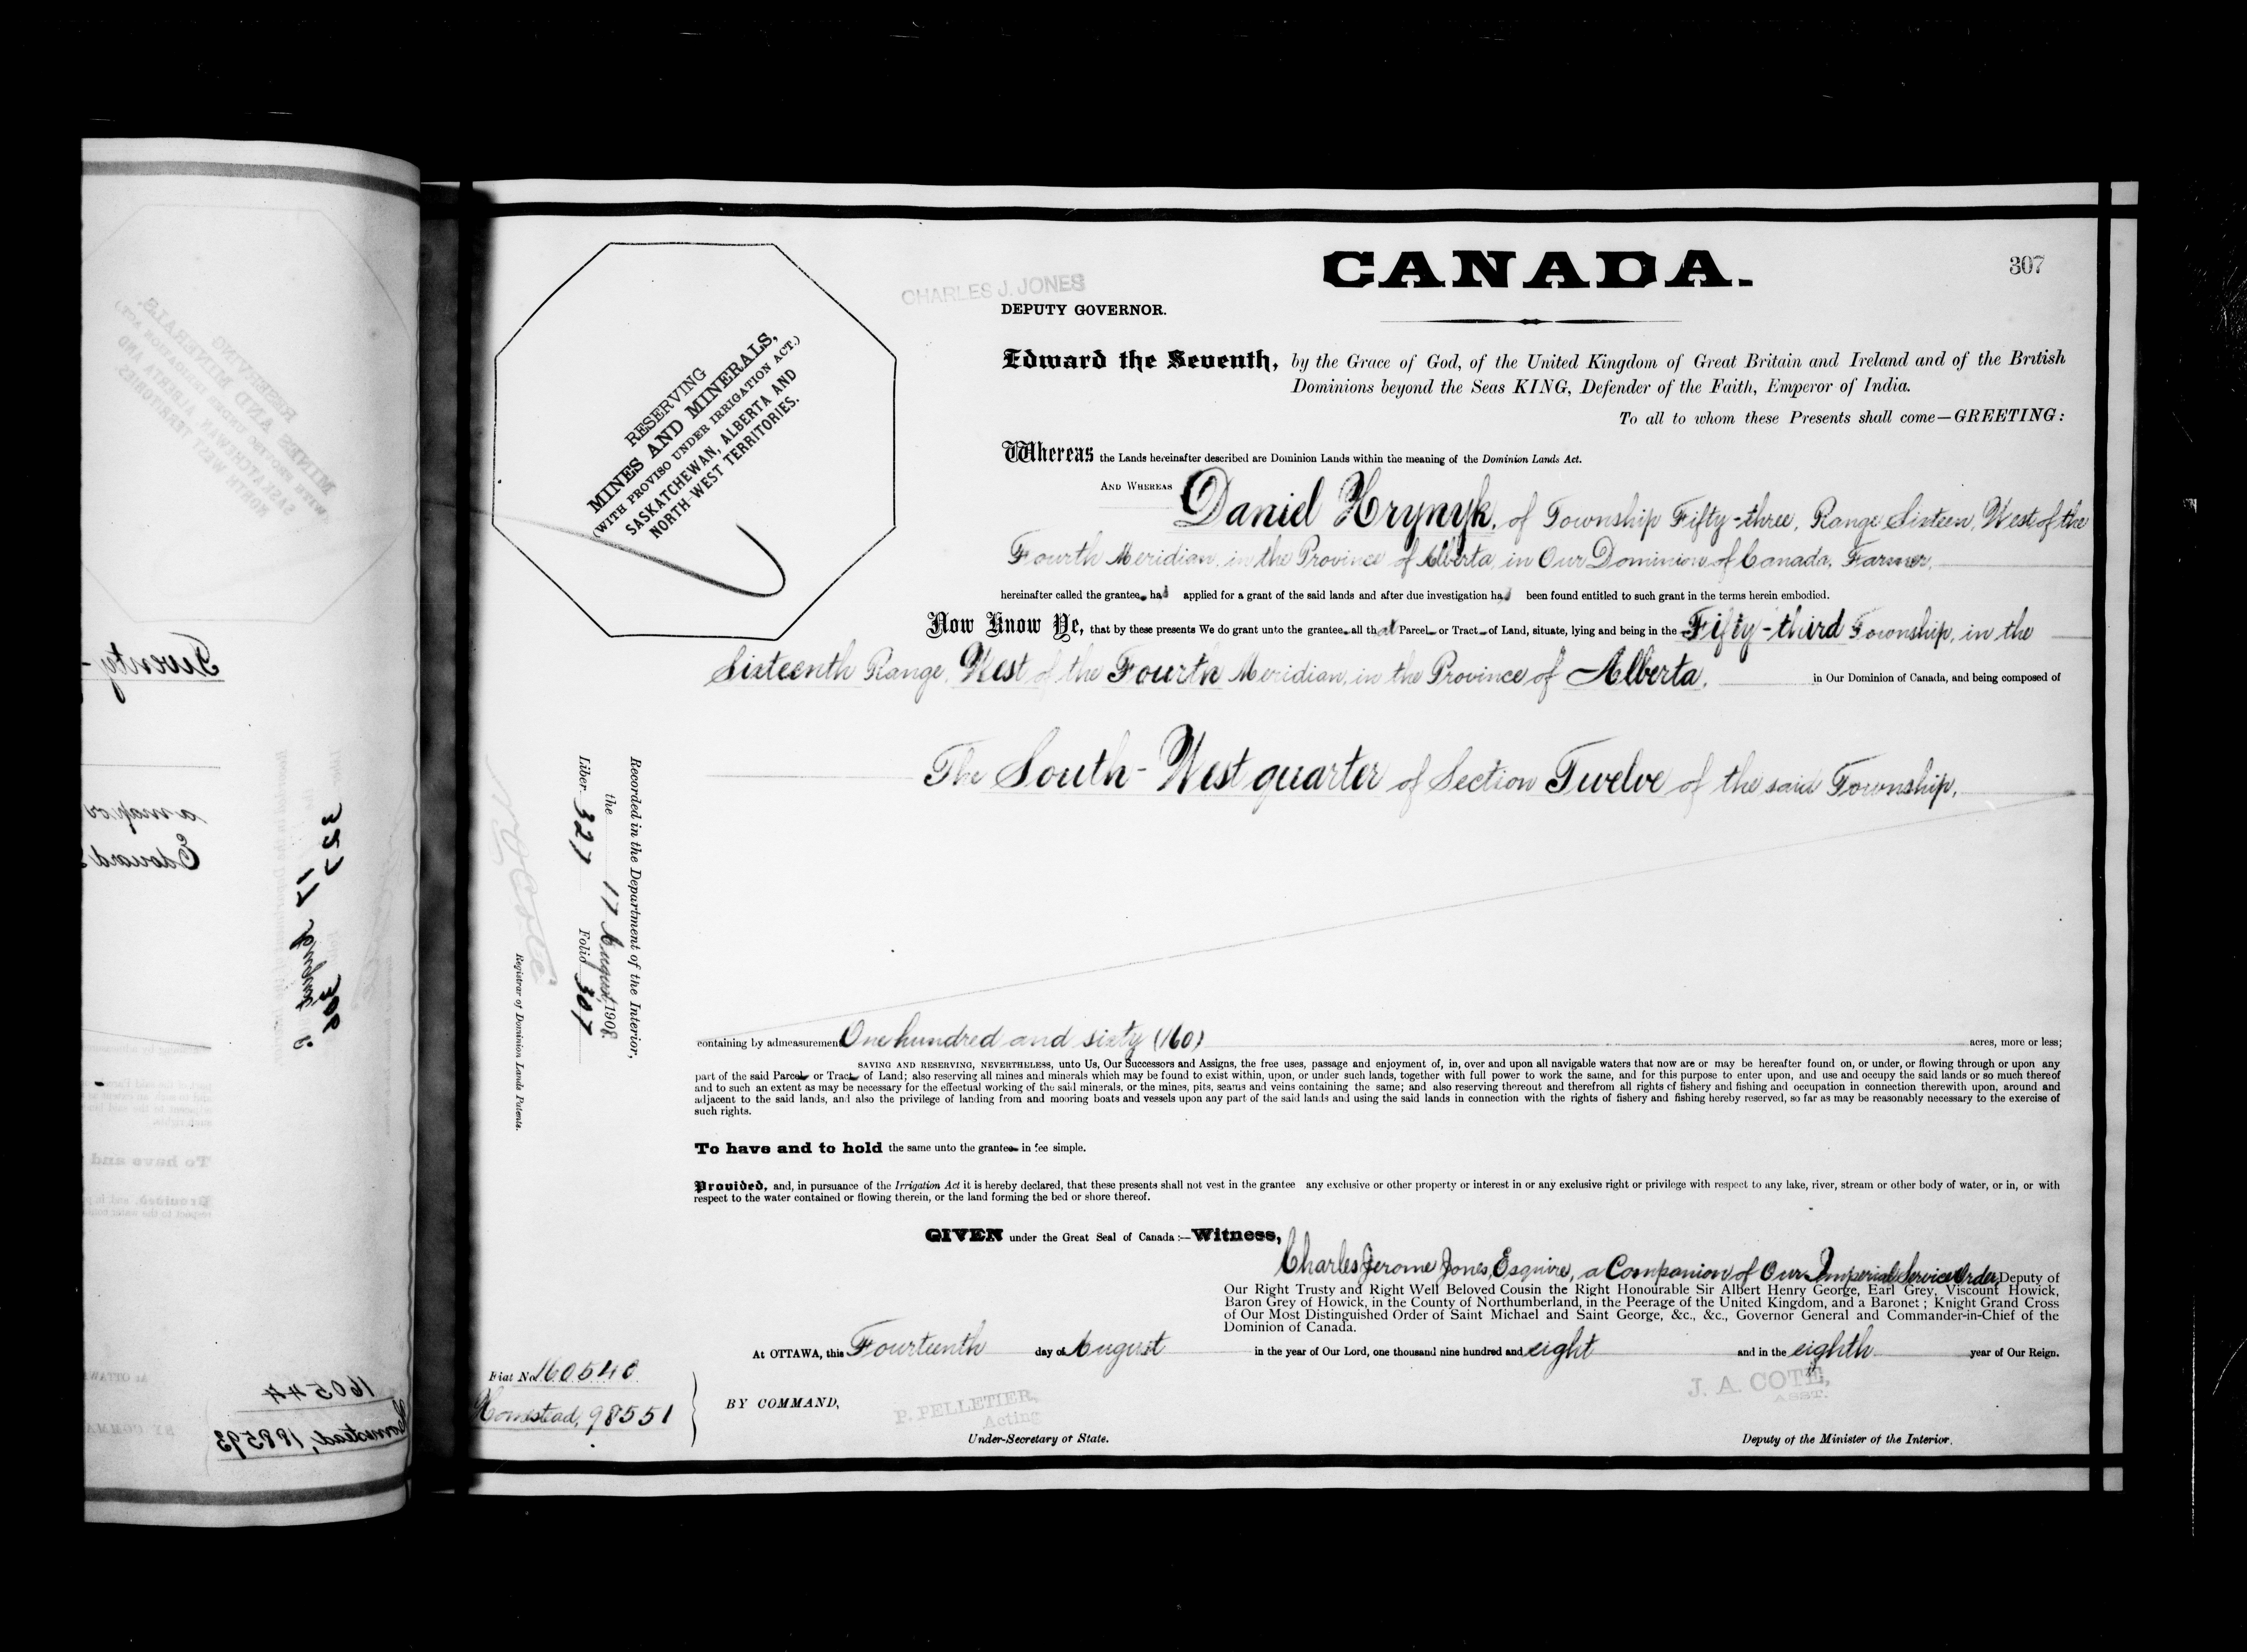 CANADA.
307
CHARLES J. JONES
DEPUTY GOVERNOR.
RESERVING
MINES AND MINERALS,
(WITH PROVISO UNDER IRRIGATION ACT.)
SASKATCHEWAN, ALBERTA AND
NORTH-WEST TERRITORIES.
Edward the Seventh, by the Grace of God, of the United Kingdom of Great Britain and Ireland and of the British
Dominions beyond the Seas KING, Defender of the Faith, Emperor of India.
To all to whom these Presents shall come—GREETING:
Whereas the Lands hereinafter described are Dominion Lands within the meaning of the Dominion Lands Act.
AND WHEREAS Daniel Hrynyk, of Township Fifty-three, Range Sixteen, West of the
Fourth Meridian, in the Province of Alberta, in Our Dominion of Canada, Farmer,
hereinafter called the grantee, has applied for a grant of the said lands and after due investigation has been found entitled to such grant in the terms herein embodied.
Now Know Ye, that by these presents We do grant unto the grantee all that Parcel or Tract of Land, situate, lying and being in the Fifty-third Township, in the
Sixteenth Range, West of the Fourth Meridian, in the Province of Alberta, in Our Dominion of Canada, and being composed of
The South-West quarter of Section Twelve of the said Township,
Recorded in the Department of the Interior,
the 17 August, 1908.
Liber 327 Folio 307
Registrar of Dominion Lands Patents.
containing by admeasurement One hundred and sixty (160) acres, more or less;
SAVING AND RESERVING, NEVERTHELESS, unto Us, Our Successors and Assigns, the free uses, passage and enjoyment of, in, over and upon all navigable waters that now are or may be hereafter found on, or under, or flowing through or upon any
part of the said Parcel or Tract of Land; also reserving all mines and minerals which may be found to exist within, upon, or under such lands, together with full power to work the same, and for this purpose to enter upon, and use and occupy the said lands or so much thereof
and to such an extent as may be necessary for the effectual working of the said minerals, or the mines, pits, seams and veins containing the same; and also reserving thereout and therefrom all rights of fishery and fishing and occupation in connection therewith upon, around and
adjacent to the said lands, and also the privilege of landing from and mooring boats and vessels upon any part of the said lands and using the said lands in connection with the rights of fishery and fishing hereby reserved, so far as may be reasonably necessary to the exercise of
such rights.
To have and to hold the same unto the grantee in fee simple.
Provided, and, in pursuance of the Irrigation Act it is hereby declared, that these presents shall not vest in the grantee any exclusive or other property or interest in or any exclusive right or privilege with respect to any lake, river, stream or other body of water, or in, or with
respect to the water contained or flowing therein, or the land forming the bed or shore thereof.
GIVEN under the Great Seal of Canada:—Witness,
Charles Jerome Jones, Esquire, a Companion of Our Imperial Service Order, Deputy of
Our Right Trusty and Right Well Beloved Cousin the Right Honourable Sir Albert Henry George, Earl Grey, Viscount Howick,
Baron Grey of Howick, in the County of Northumberland, in the Peerage of the United Kingdom, and a Baronet; Knight Grand Cross
of Our Most Distinguished Order of Saint Michael and Saint George, &c., &c., Governor General and Commander-in-Chief of the
Dominion of Canada.
At OTTAWA, this Fourteenth day of August in the year of Our Lord, one thousand nine hundred and eight and in the eighth year of Our Reign.
Fiat No. 160540
Homestead, 98551
BY COMMAND,
P. PELLETIER,
Acting
Under-Secretary of State.
J. A. COTE,
ASST.
Deputy of the Minister of the Interior.